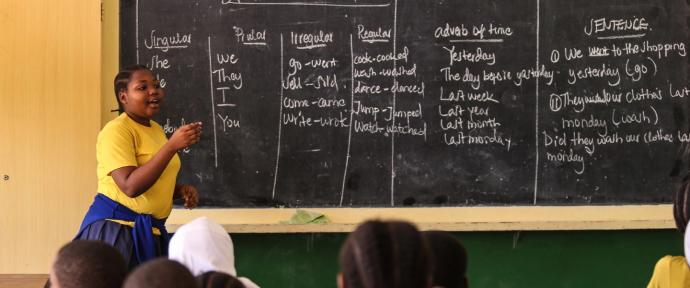 Singular
She
Plural
We
They
I
You
Irregular
go - went
sell - sold
come - came
write - wrote
Regular
cook - cooked
wash - washed
dance - danced
Jump - Jumped
Watch - watched
adverb of time
Yesterday
The day before yesterday
Last week
Last year
Last month
Last monday
SENTENCE
① We went to the shopping
yesterday (go)
② They our clothes last
monday (wash)
Did they wash our clothes last
monday